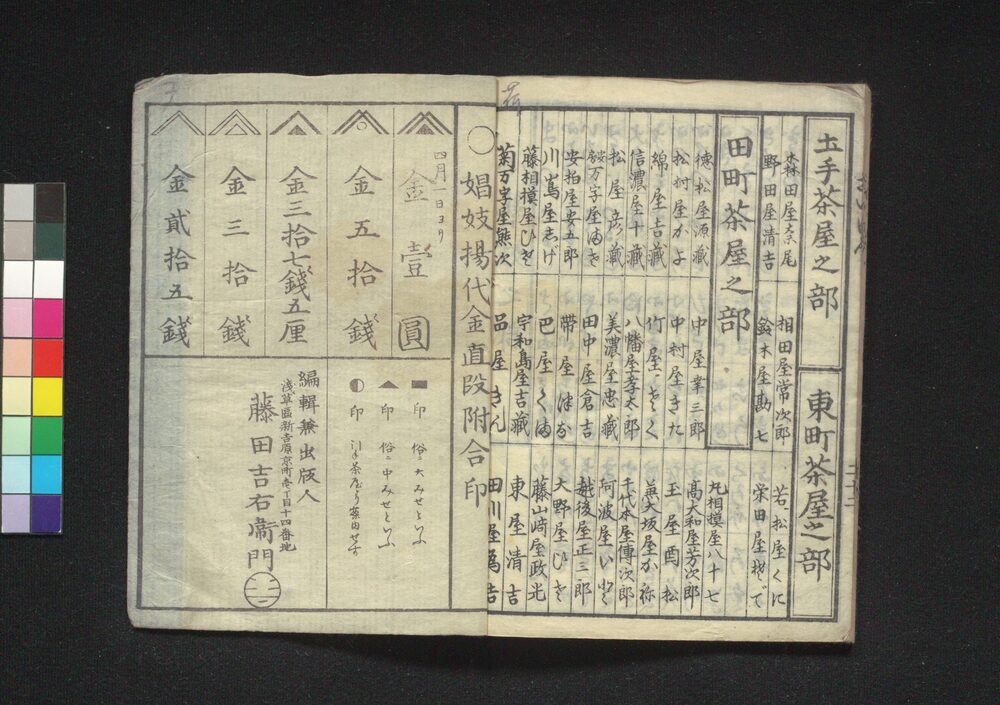 土手茶屋之部
東町茶屋之部
森田屋奈尾
相田屋常次郎
若松屋くに
野田屋清吉
鈴木屋勘七
栄田屋
田町茶屋之部
徳松屋源蔵
中屋業三郎
丸相摸屋八十七
松村屋かよ
中村屋きた
高大和屋芳次郎
綿屋吉蔵
竹屋
玉屋酉松
信濃屋十蔵
八幡屋孝太郎
兼大坂屋か祢
松屋彦蔵
美濃屋忠蔵
千代本屋傳次郎
万字屋
田中屋倉吉
阿波屋
安拍屋安五郎
帯屋
越後屋正三郎
川嶌屋志げ
巴屋くま
大野屋ひさ
藤相摸屋ひさ
宇和島屋吉蔵
藤山﨑屋政光
菊万字屋熊次
品屋きん
東屋清吉
田川屋為吉
〇娼妓揚代金直段附合印
四月一日ヨリ
金壹圓
金五拾錢
金三拾七錢五厘
金三拾錢
金貳拾五錢
■印 俗ニ大みせといふ
▲印 俗ニ中みせといふ
◐印 引手茶屋より案内せず
編輯兼出版人
浅草區新吉原京町壱丁目十四番地
藤田吉右衞門